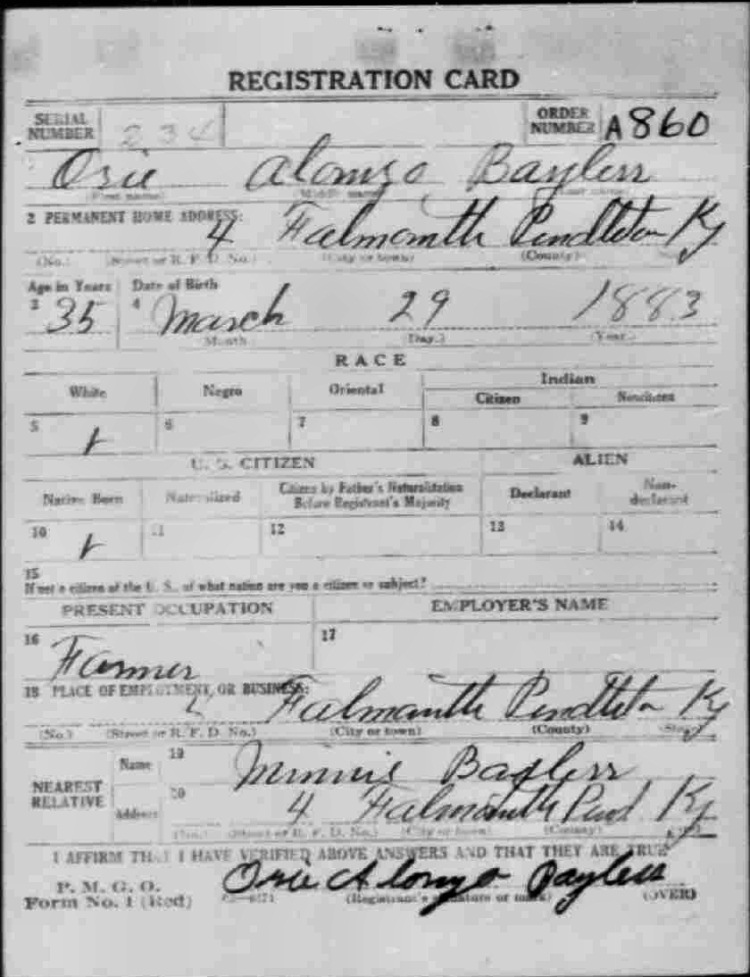 REGISTRATION CARD
SERIAL NUMBER 234 ORDER NUMBER A860
Osie Alonzo Bayless
(First name) (Middle name) (Last name)
2 PERMANENT HOME ADDRESS:
4 Falmouth Pendleton Ky
(No.) (Street or R. F. D. No.) (City or town) (County) (State)
Age in Years Date of Birth
3 35 4 March 29 1883
Month (Day.) (Year.)
RACE
White Negro Oriental Indian
Citizen Noncitizen
5 6 7 8 9
U. S. CITIZEN ALIEN
Native Born Naturalized Citizen by Father's Naturalization Before Registrant's Majority Declarant Non-declarant
10 11 12 13 14
15
If not a citizen of the U. S., of what nation are you a citizen or subject?
PRESENT OCCUPATION EMPLOYER'S NAME
16 Farmer 17
18 PLACE OF EMPLOYMENT OR BUSINESS:
4 Falmouth Pendleton Ky
(No.) (Street or R. F. D. No.) (City or town) (County) (State)
NEAREST RELATIVE Name 19 Minnie Bayless
Address 20 4 Falmouth Pend Ky
(No.) (Street or R. F. D. No.) (City or town) (County) (State)
I AFFIRM THAT I HAVE VERIFIED ABOVE ANSWERS AND THAT THEY ARE TRUE
P. M. G. O.
Form No. 1 (Red) Osie Alonzo Bayless
(Registrant's signature or mark) (OVER)